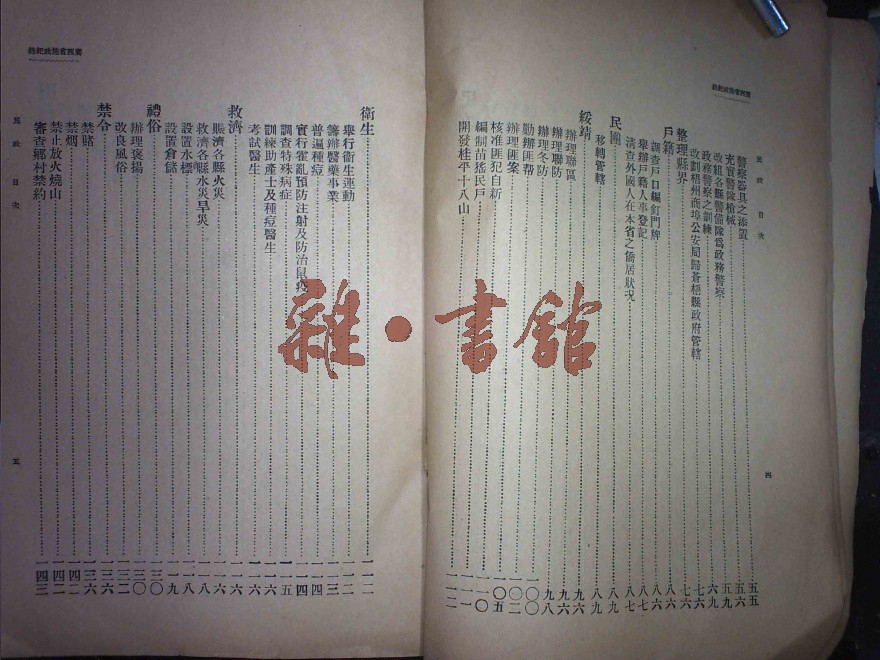 廣西省施政紀錄
民政 目次
四
警察器具之添置 五五
充實警隊槍械 五六
改組各縣警備隊爲政務警察 五九
政務警察之訓練 六九
改劃梧州商埠公安局歸蒼梧縣政府管轄
整理縣界
戶籍
調查戶口編釘門牌 八六
舉辦戶籍人事登記 八七
清查外國人在本省之僑居狀况 八七
民團 八九
移轉管轄 八九
綏靖 九六
辦理聯區 九六
辦理聯防
辦理冬防
勦辦匪帮
辦理匪案
核准匪犯自新 一〇五
編制苗猺民戶 一一〇
開發桂平十八山 一一二
廣西省施政紀錄
民政 目次
五
衛生 一一二
舉行衛生運動 一一二
籌辦醫藥事業 一一三
普遍種痘 一一四
實行霍亂預防注射及防治鼠疫 一一四
調查特殊病症 一一五
訓練助產士及種痘醫生 一一六
考試醫生 一一六
救濟 一一六
賑濟各縣火災 一一六
救濟各縣水災旱災 一一八
設置水標 一一八
設置倉儲 一一九
禮俗 一三〇
辦理褒揚 一三〇
改良風俗 一三二
禁令 一三六
禁賭 一三六
禁烟 一四二
禁止放火燒山 一四二
審查鄉村禁約 一四三
雜·書館